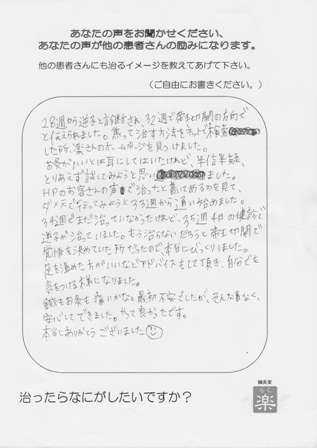 あなたの声をお聞かせください、
あなたの声が他の患者さんの励みになります。
他の患者さんにも治るイメージを教えてあげて下さい。
（ご自由にお書きください。）
28週から逆子と診断され、32週で帝王切開の方向で
と伝えられました。焦って治す方法をネットで検索
した所、楽さんのホームページを見つけました。
お灸がいいとは耳にしてはいたけれど、半信半疑、
とりあえず試してみようと思い ました。
HPのお客さんの声で治ったと書いてあるのを見て、
ダメ元でやってみようと33週から通い始めました。
34週でまだ治っていなかったけれど、35週 の健診で
逆子が治っていました。もう治らないだろうと帝王切開で
覚悟を決めていた所だったので、本当にびっくりしました。
足を温めた方がいいなどアドバイスもして頂き、自分でも
気をつける様になりました。
鍼もお灸も痛いかなと最初不安でしたが、そんな事なく、
安心してできました。やって良かったです。
本当にありがとうございました
治ったらなにがしたいですか？
鍼灸室
らく
楽